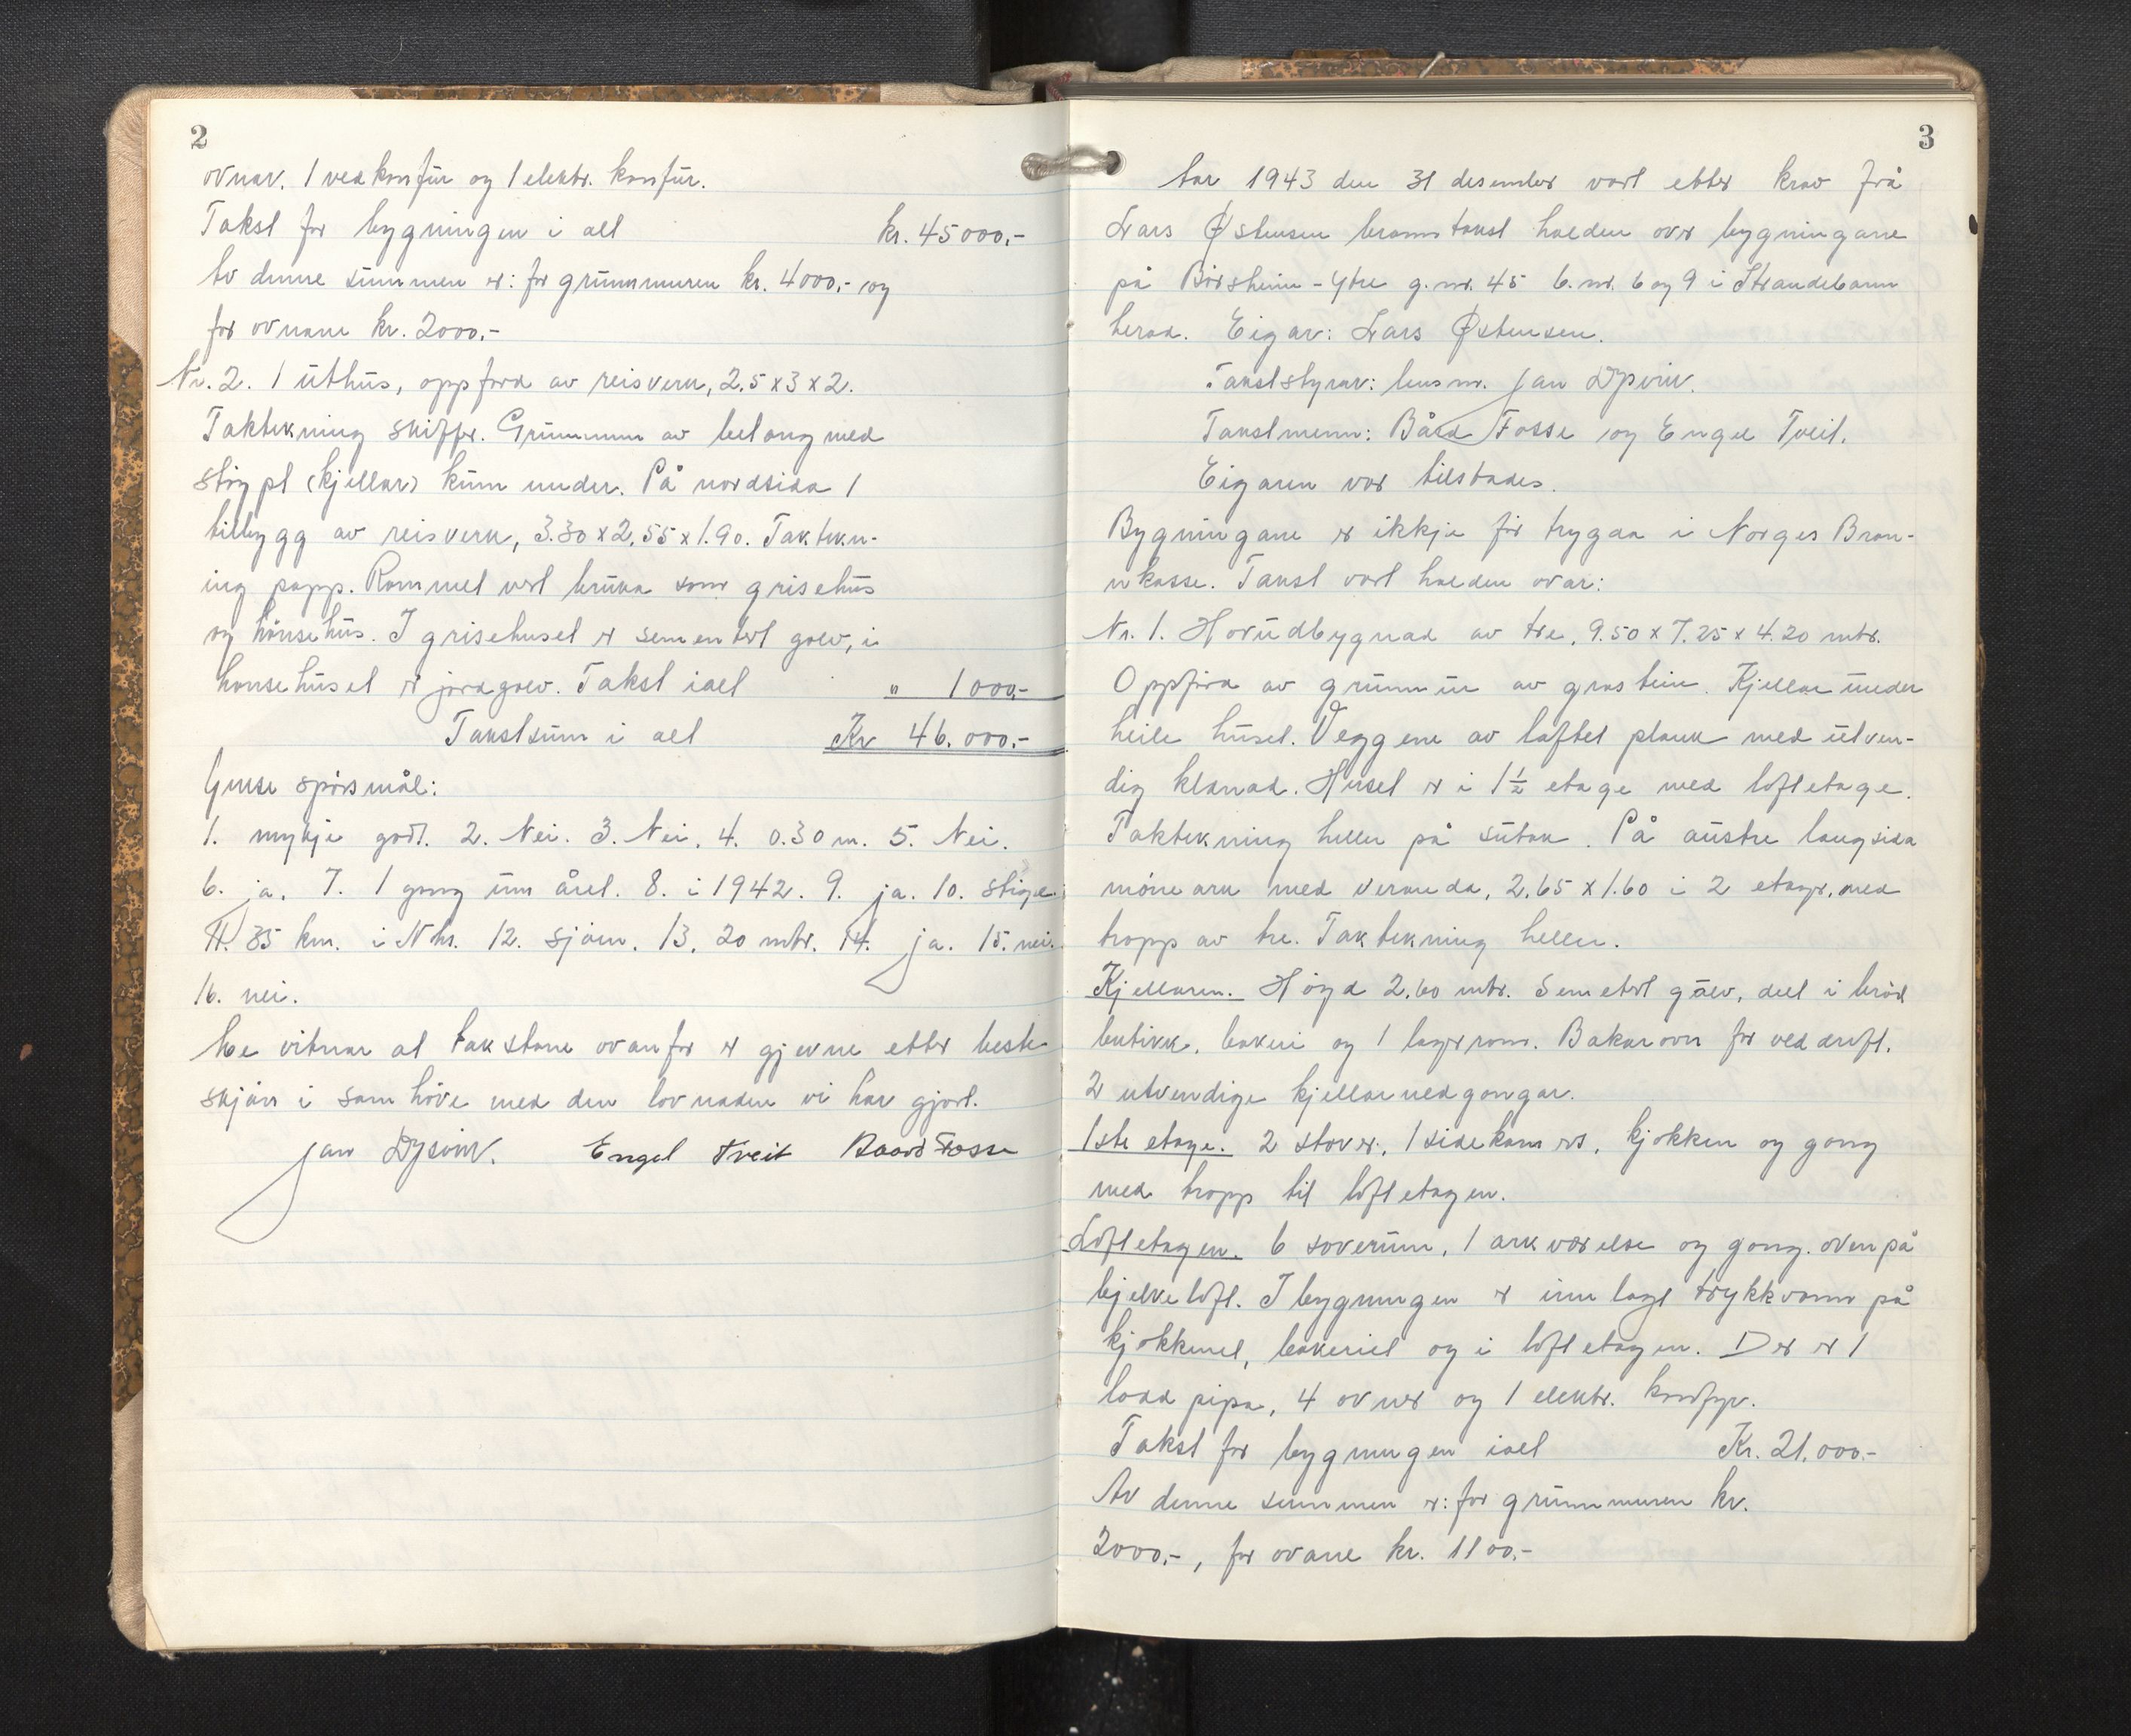 2
ovnar. 1 vedkomfür og 1 elektr. komfür.
Takst for bygningen i alt kr. 45000,-
Av denne summen er: for grünnmuren kr. 4000,- og
for ovnane kr. 2000,-
Nr. 2. 1 üthüs, oppförd av reisverk, 2,5 x 3 x 2.
Taktekning skiffer. Grünnmur av betong med
stöypt (kjellar) küm under. På nordsida 1
tilbygg av reisverk, 3.30 x 2,55 x 1.90. Taktekn-
ing papp. Rommet vert brüka som grisehüs
og hönsehüs. I grisehuset er sementert golv, i
hönsehüset er jordgolv. Takst ialt " 1000,-
Takstsüm i alt Kr 46.000,-
Ymse spörsmål:
1. mykje godt. 2. Nei. 3. Nei. 4. 0.30 m. 5. Nei.
6. ja. 7. 1 gong üm året. 8. i 1942. 9. ja. 10. stige.
11. 35 km. i Nhs. 12. sjöen. 13. 20 mtr. 14. ja. 15. nei.
16. nei.
Me vitnar at takstane ovanfor er gjevne etter beste
skjön i samhöve med den lovnaden vi har gjort.
Jan Dysvik. Engel Tveit Baard Fosse
3
År 1943 den 31 desember vart etter krav frå
Lars Østensen branntakst halden over bygningane
på Börsheim-Ytre g.nr. 45 b.nr. 6 og 9 i Strandebarm
herad. Eigar: Lars Østensen.
Takststyrar: lensm. Jan Dysvik.
Takstmenn: Bård Fosse og Engel Tveit.
Eigaren var tilstades.
Bygningane er ikkje för trygda i Norges Bran-
nkasse. Takst vart halden over:
Nr. 1. Hovüdbygnad av tre, 9.50 x 7.25 x 4.20 mtr.
Oppförd av grünnmür av gråstein. Kjellar ünder
heile hüset. Veggene av laftet plank med ütven-
dig klednad. Huset er i 1½ etage med loftetage.
Taktekning heller på sütak. På aüstre langsida
möneark med veranda, 2,65 x 1.60 i 2 etager, med
tropp av tre. Taktekning heller.
Kjellaren. Högd 2,60 mtr. Sementert gålv, delt i bröd
butikk, bakeri og 1 lagerrom. Bakarovn for ved drift.
2 utvendige kjellarnedgongar.
1ste etage. 2 stover, 1 sidekamers, kjökken og gong
med tropp til loftetagen.
Loftetagen. 6 soverüm, 1 arkværelse og gong. Ovenpå
bjelkeloft. I bygningen er innlagt trykkvann på
kjökkenet, bakeriet og i loftetagen. Der er 1
lodd pipa, 4 ovner og 1 elektr. komfyr.
Takst for bygningen ialt Kr. 21.000.-
Av denne summen er: for grünnmuren kr.
2000.-, for ovane kr. 1100.-